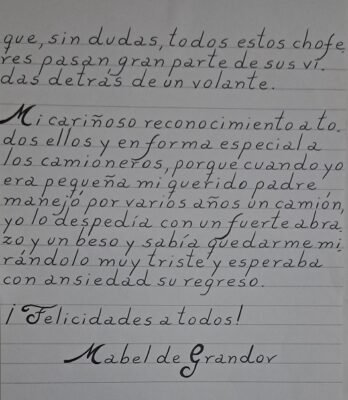 que, sin dudas, todos estos chofe.
res pasan gran parte de sus vi.
das detrás de un volante.
Mi cariñoso reconocimiento a to.
dos ellos y en forma especial a
los camioneros, porque cuando yo
era pequeña mi querido padre
manejó por varios años un camión,
yo lo despedía con un fuerte abra.
zo y un beso y sabía quedarme mi.
rándolo muy triste y esperaba
con ansiedad su regreso.
¡Felicidades a todos!
Mabel de Grandov